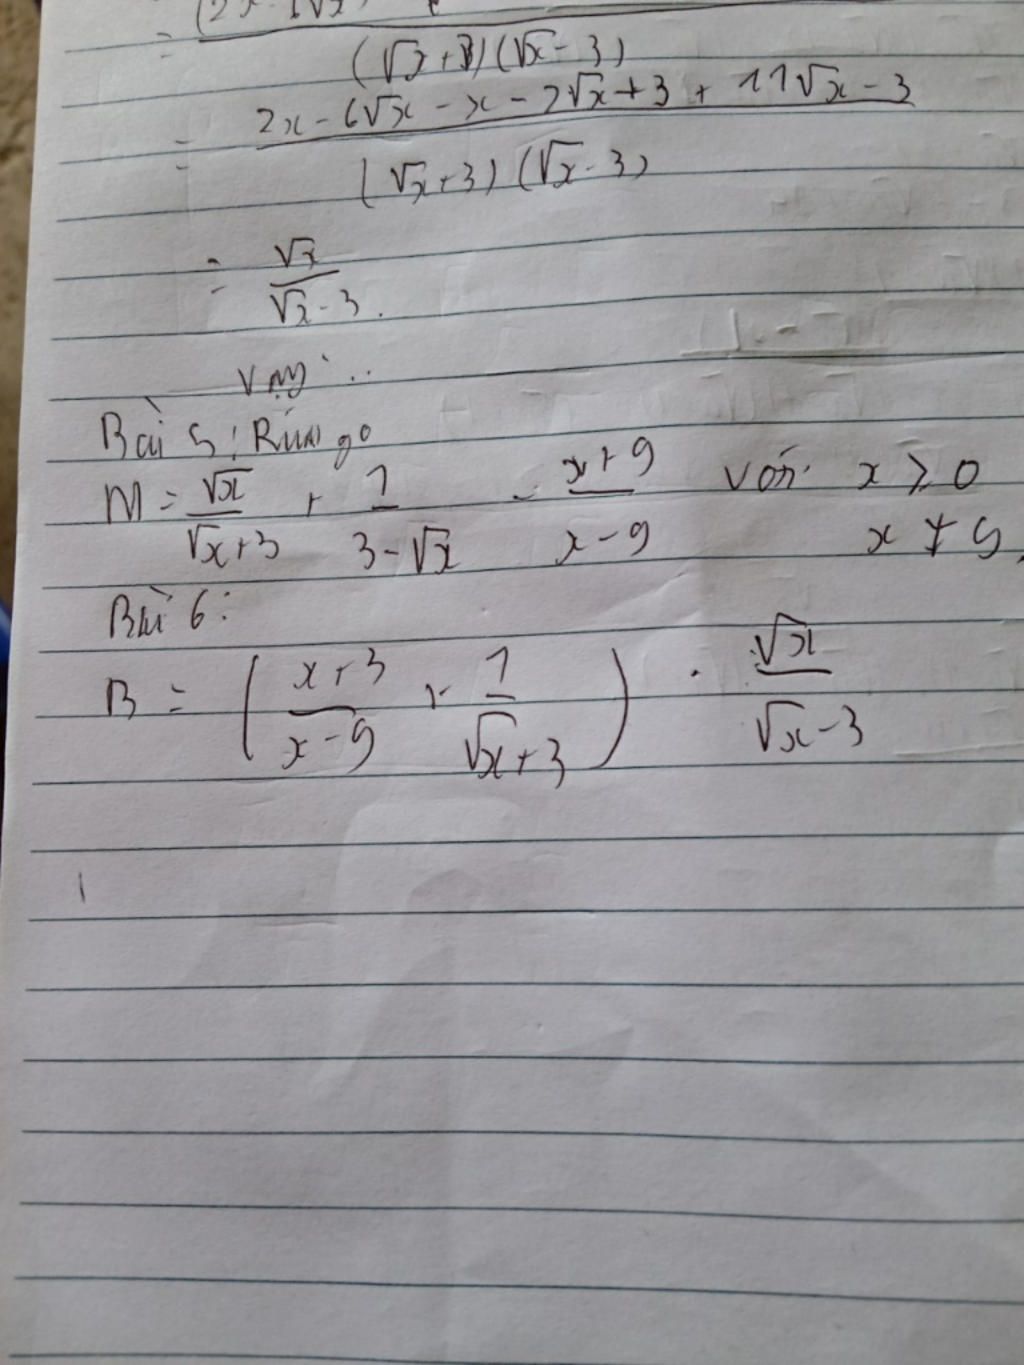 (√x+3)(√x-3)
= 2x - 6√x - x - 2√x + 3 + 11√x - 3
(√x+3) (√x-3)
= √x
√x - 3.
Vậy ..
Bài 5: Rút gọ
M = √x/(√x+3) + 1/(3-√x) - (x+9)/(x-9) với x ≥ 0
x ≠ 9.
Bài 6:
B = ( (x+3)/(x-9) + 1/(√x+3) ) . √x/(√x-3)